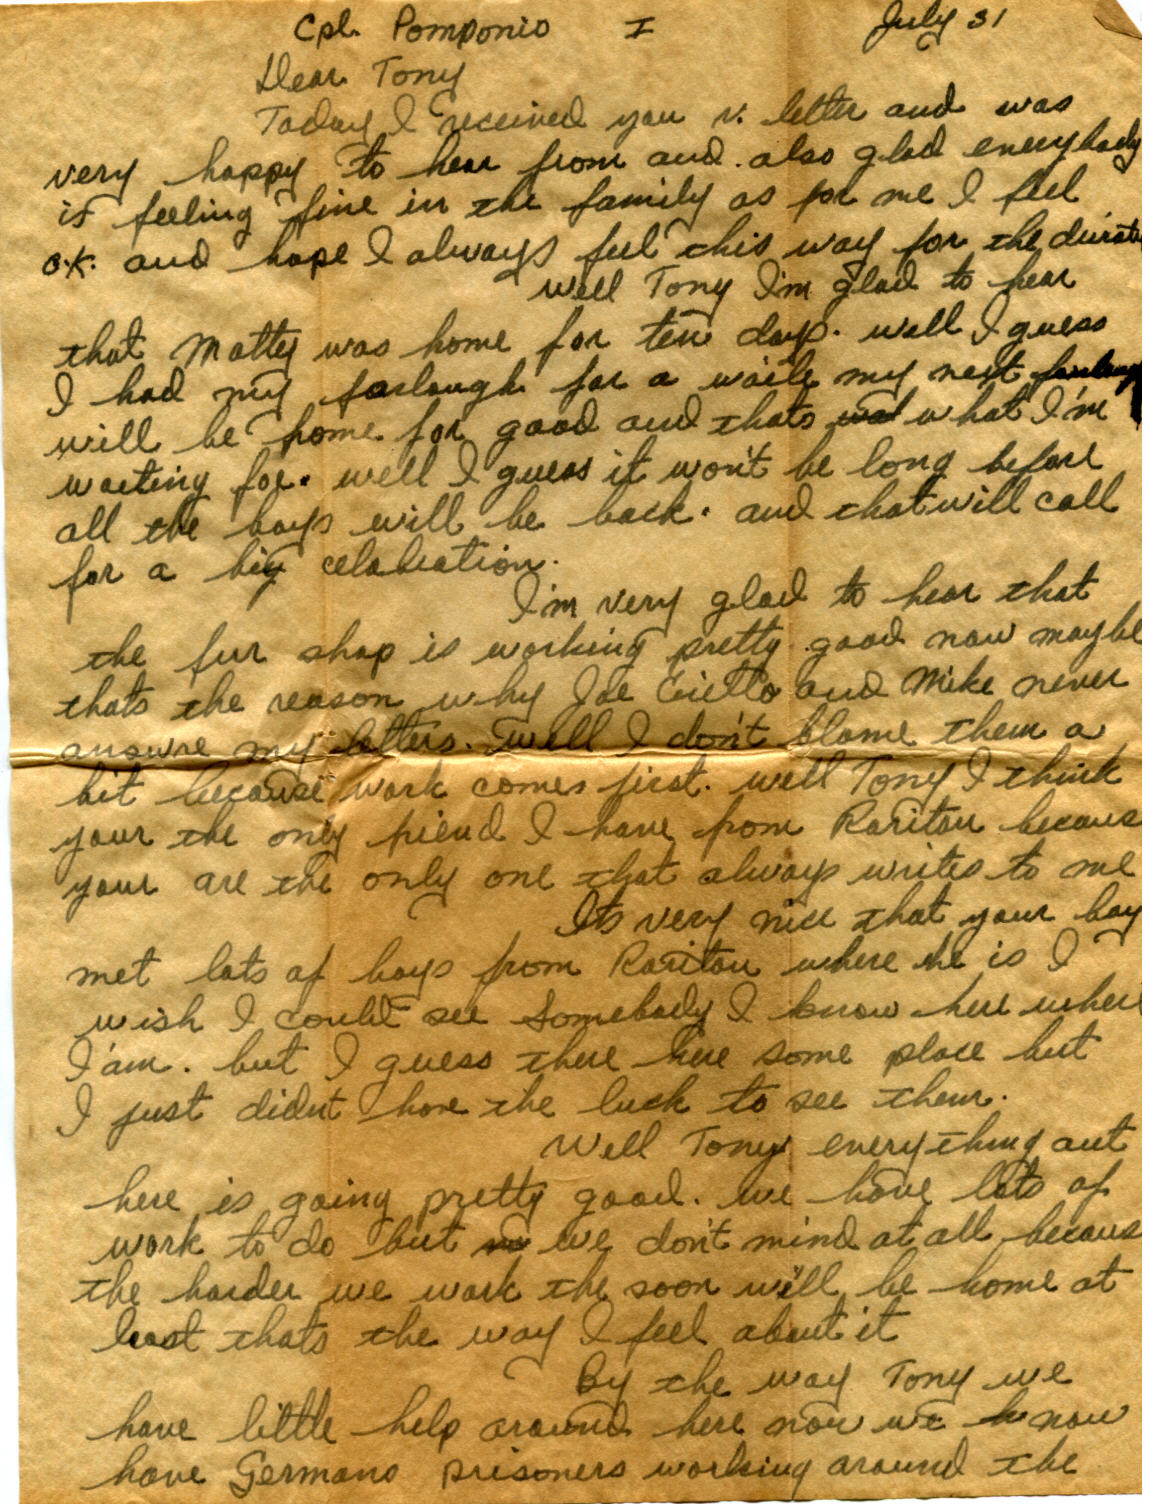 Cpl. Pomponio I July 31
Dear Tony
Today I received you v. letter and was
very happy to hear from and. also glad everybody
is feeling fine in the family as for me I feel
O.K. and hope I always feel this way for the durat
Well Tony I'm glad to hear
that Matty was home for ten days. well I guess
I had my forlough for a waile my next
will be home for good and thats what I'm
waiting for. well I guess it won't be long before
all the boys will be back. and that will call
for a big celabration.
I'm very glad to hear that
the fur shop is working pretty good now maybe
thats the reason why Joe and Mike never
answre my letters. well I don't blame them a
bit because work comes first. well Tony I think
your the only friend I have from Raritan becaus
your are the only one that always writes to me
Its very nice that your boy
met lots of boys from Raritan where he is I
wish I could see somebody I know here wher
I'am. but I guess there here some place but
I just didnt have the luck to see them.
Well Tony everything out
here is going pretty good. we have lots of
work to do but we don't mind at all becaus
the harder we work the soon will be home at
least thats the way I feel about it
By the way Tony we
have little help around here now we know
have Germans prisoners working around the